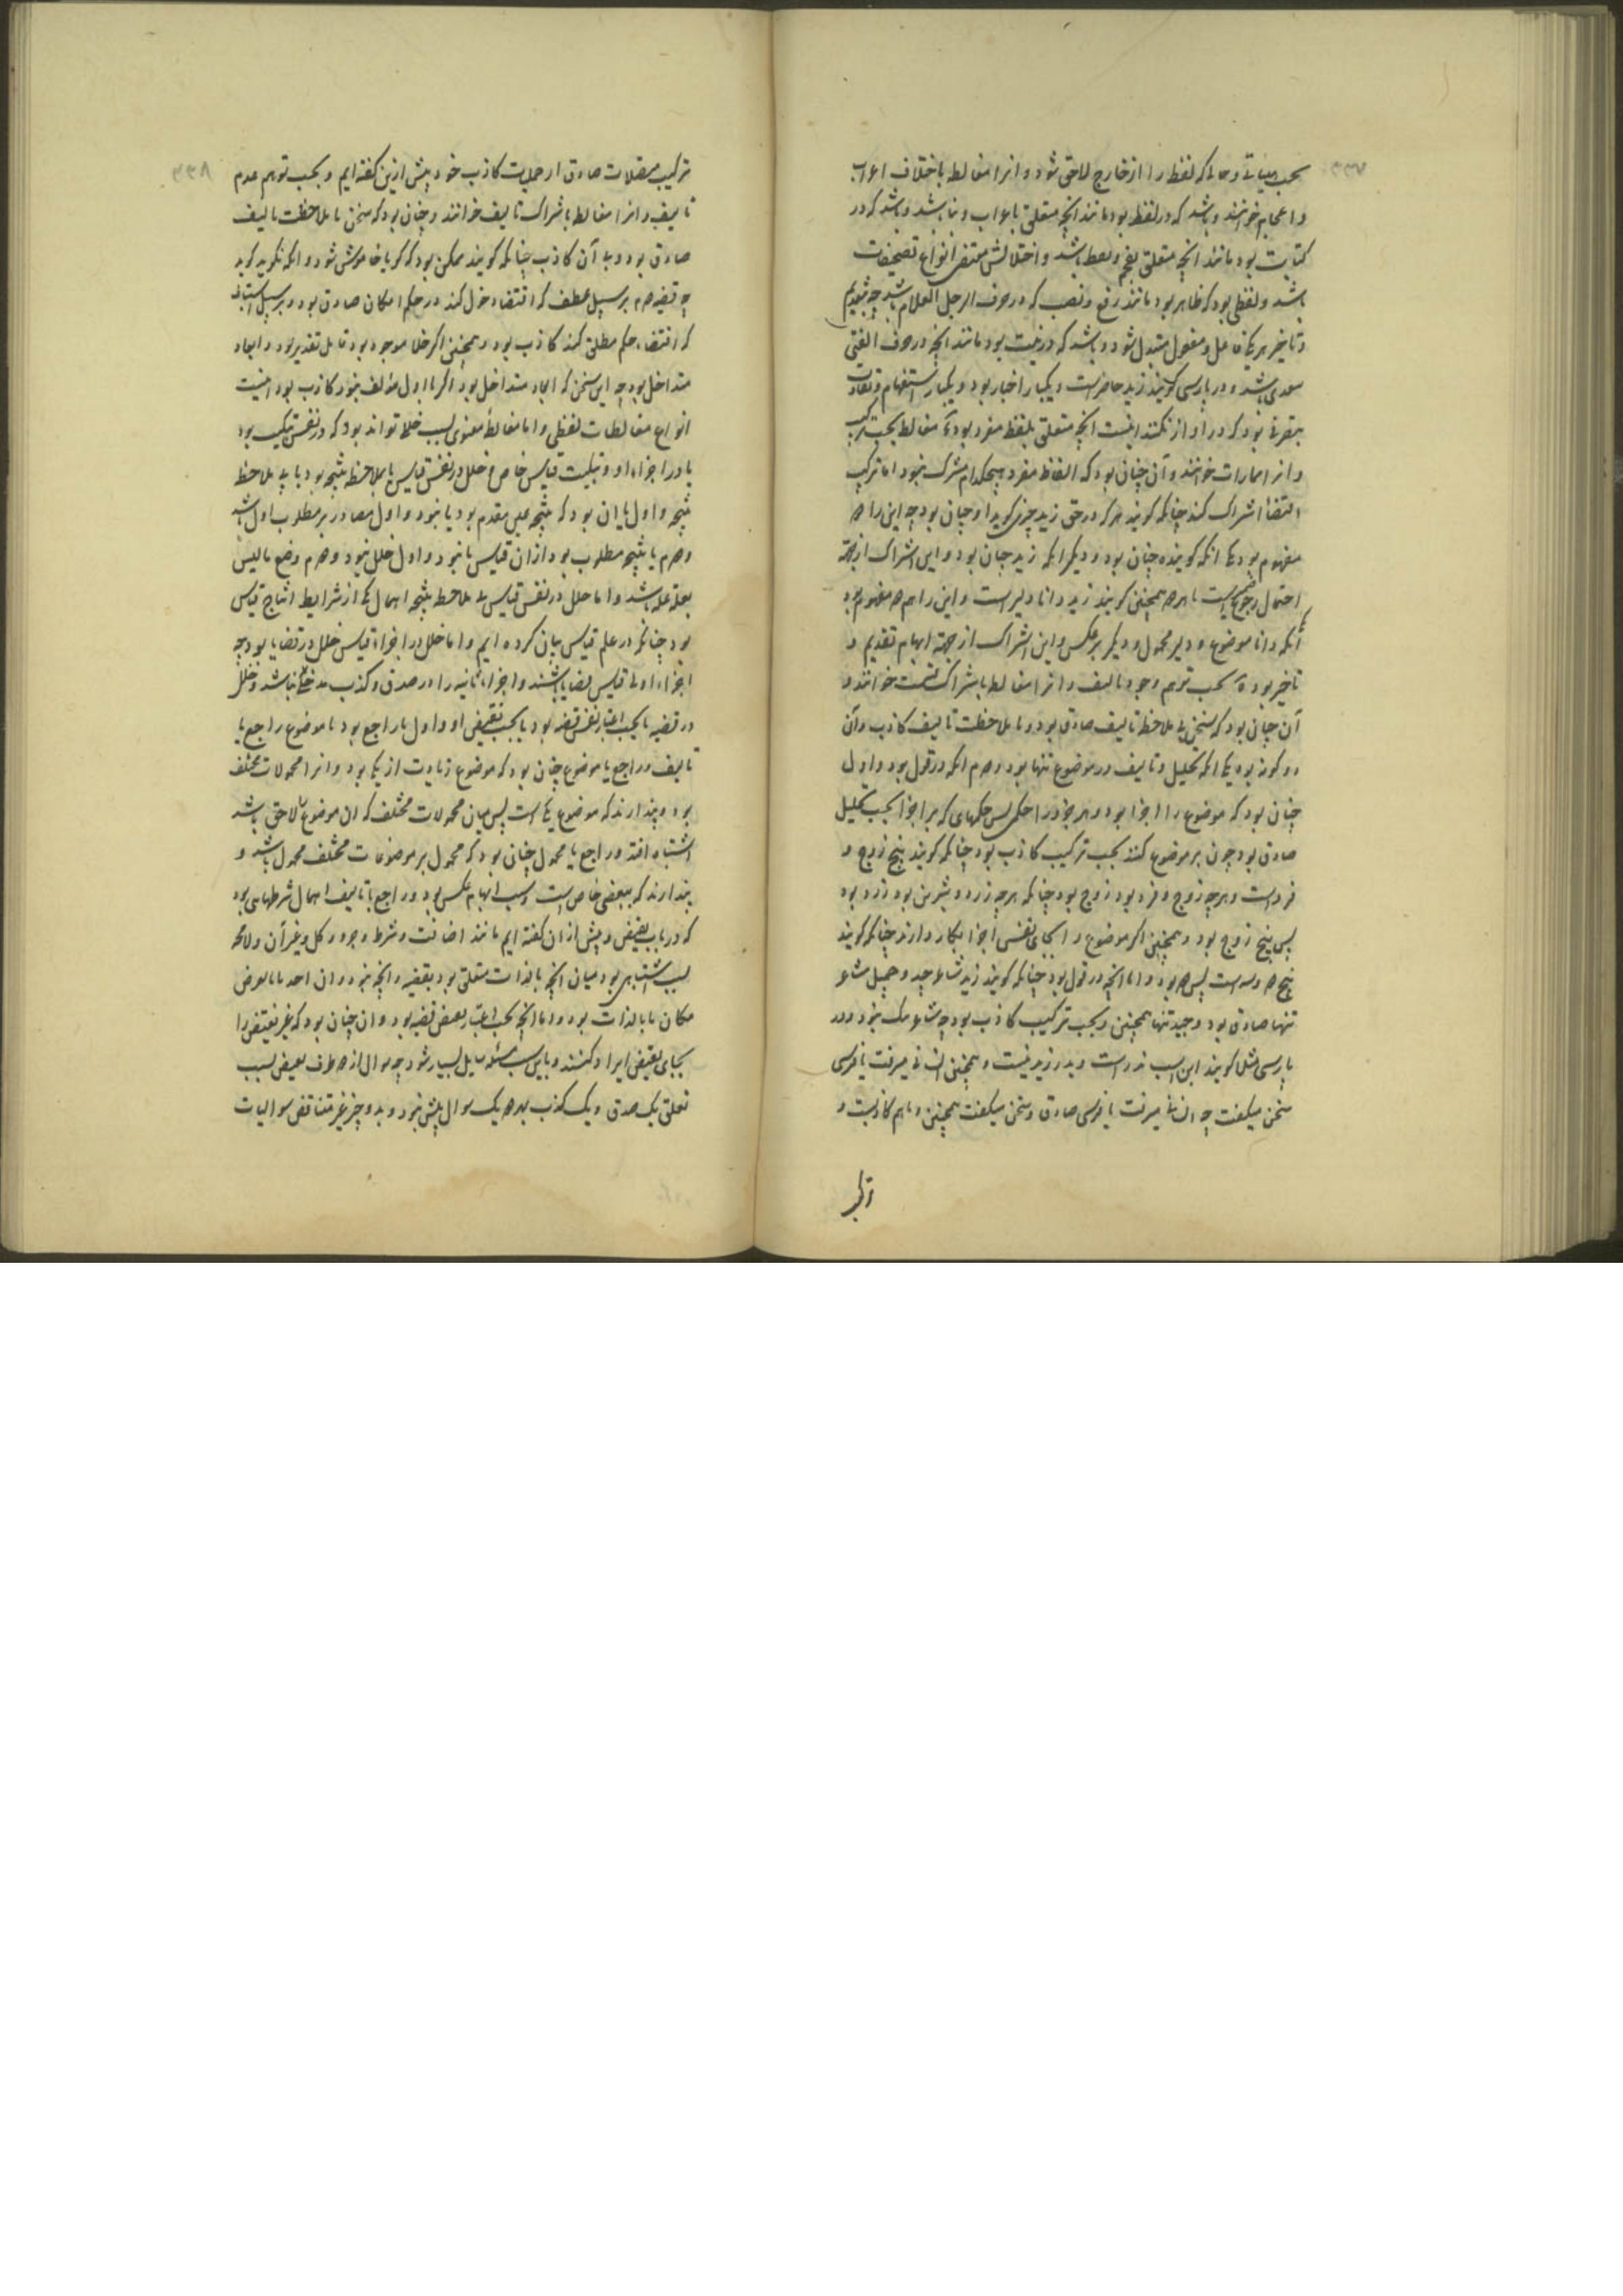 ۳۳۷
بحسب هیأتی و حالی که لفظ را از خارج لاحق شود و انرا مغالطه باختلاف اعراب
و اعجام خوانند و باشد که در لفظ بود مانند انچه متعلق باعراب و بنا باشد و باشد که در
کتابت بود مانند انچه متعلق بعجم و نقط باشد و اختلالش مقتضی انواع تصحیفات
باشد و لفظی بود که ظاهر بود مانند رفع و نصب که در ضرب الرجل الغلام باشد چه بتقدیم
و تاخیر هر یکی فاعل و مفعول متبدل شود و باشد که در نیت بود مانند انچه در ضرب الفتی
سعدی باشد و در پارسی گویند زید حاضر است و یکبار اخبار بود و یکبار استفهام و تفاوت
بود که در اواز نکنند اینست انچه متعلق بلفظ مفرد بود مغالطه بحسب ترکیب
و انرا ممارات خوانند و آن چنان بود که الفاظ مفرد هیچکدام مشترک نبود اما ترکیب
اقتضاء اشتراک کند چنانکه گویند هر که در حق زید چیزی گوید او چنان بود چه این را دو
مفهوم بود یکی انکه گوینده چنان بود و دیگر انکه زید چنان بود و این اشتراک از جهة
احتمال رجوع ضمیر است با هر دو همچنین گویند زید دانا دلیر است و این را هم دو مفهوم بود
یکی آنکه دانا موضوع و دلیر محمول و دیگر برعکس و این اشتراک از جهة ابهام تقدیم و
تاخیر بود بحسب توهم وجود تالیف و انرا مغالطه باشتراک قسمت خوانند و
آن چنان بود که سخن بی ملاحظه تالیف صادق بود و با ملاحظت تالیف کاذب و آن
دو گونه بود یکی انکه تحلیل و تالیف در موضوع تنها بود و دوم انکه در قول بود و اول
چنان بود که موضوع را اجزا بود و هر جزو را حکمی پس حکمهای که بر اجزا بحسب تحلیل
صادق بود چون بر موضوع کنند بحسب ترکیب کاذب بود چنانکه گویند پنج زوج و
فرد است و هر چه زوج و فرد بود زوج بود چنانکه هر چه زرد و شیرین بود زرد بود
پس پنج زوج بود و همچنین اگر موضوع را بجای نفس اجزا بکار دارند چنانکه گویند
پنج دو و سه است پس دو بود و اما انچه در قول بود چنانکه گویند زید شاعر جید و جید شاعر
تنها صادق بود و جید تنها همچنین و بحسب ترکیب کاذب بود چه شاعر نیک نبود و در
پارسی مثلا گویند این اسب پدر است و پدر زید نیست و همچنین انسانی میرفت یا فرسی
سخن میگفت چه انسانی میرفت یا فرسی صادق و سخن میگفت همچنین و باهم کاذبست و

۳۳۸
ترکیب منفصلات صادق از حملیات کاذب خود پیش ازین گفته ایم و بحسب توهم عدم
تالیف و انرا مغالطه باشتراک تالیف خوانند و چنان بود که سخن با ملاحظت تالیف
صادق بود و بی آن کاذب چنانکه گویند ممکن بود که گویا خاموش شود و انکه نگوید گوید
چه قضیه دوم بر سبیل عطف که اقتضاء دخول کند در حکم امکان صادق بود و بر سبیل استیناف
که اقتضاء حکم مطلق کند کاذب بود و همچنین اگر خلا موجود بود قابل تقدیر بود و ابعاد
متداخل بود چه این سخن که ابعاد متداخل بود اگر با اول مؤلف نبود کاذب بود اینست
انواع مغالطات لفظی و اما مغالطه معنوی بسبب خللی تواند بود که در نفس تبکیت بود
یا در اجزاء او و تبکیت قیاسی خاص و خلل در نفس قیاس یا بملاحظه نتیجه بود یا بی ملاحظه
نتیجه و اول یا ان بود که نتیجه عین مقدم بود یا نبود و اول مصادره بر مطلوب اول باشد
و دوم یا نتیجه مطلوب بود از ان قیاس یا نبود و اول خلل نبود و دوم وضع ما لیس
بعلة علة باشد و اما خلل در نفس قیاس بی ملاحظه نتیجه اهمال یکی از شرایط انتاج قیاس
بود چنانکه در علم قیاس بیان کرده ایم و اما خلل در اجزاء قیاس خلل در قضایا بود چه
اجزاء اولی قیاس قضایا باشند و اجزاء ثانیه را در صدق و کذب مدخلی نباشد و خلل
در قضیه یا بحسب اعتبار نفس قضیه بود یا بحسب نقیض او و اول یا راجع بود با موضوع راجع یا
تالیف و راجع با موضوع چنان بود که موضوع زیادت از یکی بود و انرا محمولات مختلف
بود و پندارند که موضوع یکی است پس میان محمولات مختلف که ان موضوع را لاحق باشد
اشتباه افتد و راجع با محمول چنان بود که محمول بر موضوعات مختلف محمول باشد و
پندارند که ببعضی خاص است و سبب ابهام عکس بود و راجع با تالیف اهمال شرطهایی بود
که در باب نقیض و پیش از ان گفته ایم مانند اضافت و شرط و جزو و کل و غیر آن و لا محاله
سبب اشتباهی بود میان انچه بالذات متعلق بود بقضیه و انچه نبود و ان اخذ ما بالعرض
مکان ما بالذات بود و اما انچه بحسب اعتبار نقیض قضیه بود و ان چنان بود که غیر نقیض را
بجای نقیض ایراد کنند و باین سبب مسئله مسایل بسیار شود چه سوال از دو طرف نقیض بسبب
تعلق یک صدق و یک کذب بهر دو یک سوال بیش نبود و بدو چیز غیر متناقض سوالیات